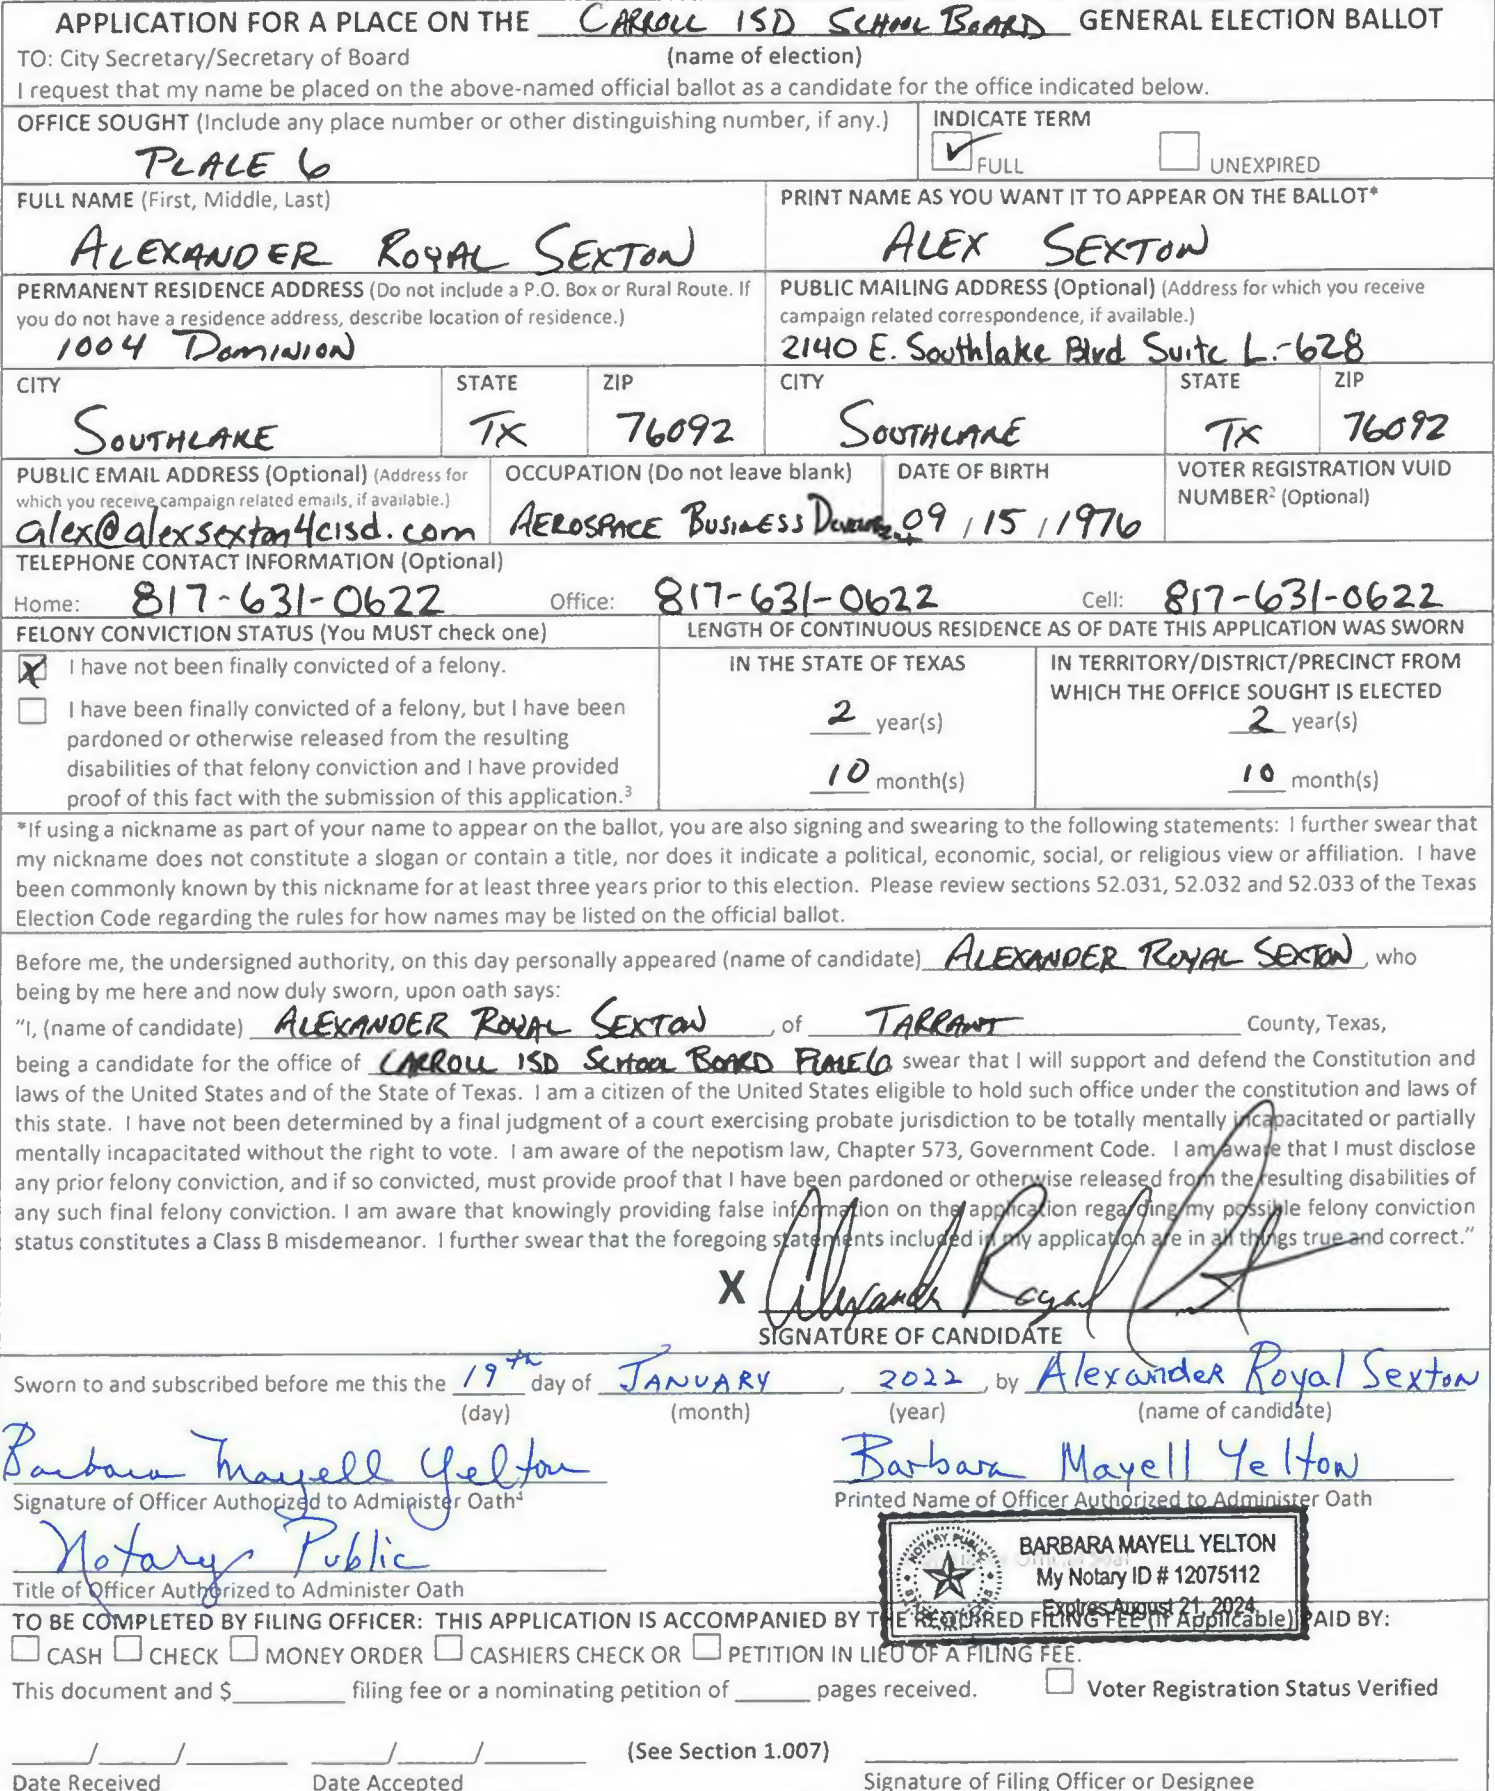 APPLICATION FOR A PLACE ON THE CARROLL ISD SCHOOL BOARD GENERAL ELECTION BALLOT
TO: City Secretary/Secretary of Board (name of election)
I request that my name be placed on the above-named official ballot as a candidate for the office indicated below.
OFFICE SOUGHT (Include any place number or other distinguishing number, if any.) INDICATE TERM
PLACE 6 FULL UNEXPIRED
FULL NAME (First, Middle, Last) PRINT NAME AS YOU WANT IT TO APPEAR ON THE BALLOT*
ALEXANDER ROYAL SEXTON ALEX SEXTON
PERMANENT RESIDENCE ADDRESS (Do not include a P.O. Box or Rural Route. If PUBLIC MAILING ADDRESS (Optional) (Address for which you receive
you do not have a residence address, describe location of residence.) campaign related correspondence, if available.)
1004 DOMINION 2140 E. Southlake Blvd Suite L.-628
CITY STATE ZIP CITY STATE ZIP
SOUTHLAKE TX 76092 SOUTHLAKE TX 76092
PUBLIC EMAIL ADDRESS (Optional) (Address for OCCUPATION (Do not leave blank) DATE OF BIRTH VOTER REGISTRATION VUID
which you receive campaign related emails, if available.) NUMBER² (Optional)
alex@alexsexton4cisd.com AEROSPACE BUSINESS 09 / 15 / 1976
TELEPHONE CONTACT INFORMATION (Optional)
Home: 817-631-0622 Office: 817-631-0622 Cell: 817-631-0622
FELONY CONVICTION STATUS (You MUST check one) LENGTH OF CONTINUOUS RESIDENCE AS OF DATE THIS APPLICATION WAS SWORN
X I have not been finally convicted of a felony. IN THE STATE OF TEXAS IN TERRITORY/DISTRICT/PRECINCT FROM
WHICH THE OFFICE SOUGHT IS ELECTED
I have been finally convicted of a felony, but I have been 2 year(s) 2 year(s)
pardoned or otherwise released from the resulting
disabilities of that felony conviction and I have provided 10 month(s) 10 month(s)
proof of this fact with the submission of this application.³
*If using a nickname as part of your name to appear on the ballot, you are also signing and swearing to the following statements: I further swear that
my nickname does not constitute a slogan or contain a title, nor does it indicate a political, economic, social, or religious view or affiliation. I have
been commonly known by this nickname for at least three years prior to this election. Please review sections 52.031, 52.032 and 52.033 of the Texas
Election Code regarding the rules for how names may be listed on the official ballot.
Before me, the undersigned authority, on this day personally appeared (name of candidate) ALEXANDER ROYAL SEXTON, who
being by me here and now duly sworn, upon oath says:
"I, (name of candidate) ALEXANDER ROYAL SEXTON, of TARRANT County, Texas,
being a candidate for the office of CARROLL ISD SCHOOL BOARD PLACE 6 swear that I will support and defend the Constitution and
laws of the United States and of the State of Texas. I am a citizen of the United States eligible to hold such office under the constitution and laws of
this state. I have not been determined by a final judgment of a court exercising probate jurisdiction to be totally mentally incapacitated or partially
mentally incapacitated without the right to vote. I am aware of the nepotism law, Chapter 573, Government Code. I am aware that I must disclose
any prior felony conviction, and if so convicted, must provide proof that I have been pardoned or otherwise released from the resulting disabilities of
any such final felony conviction. I am aware that knowingly providing false information on the application regarding my possible felony conviction
status constitutes a Class B misdemeanor. I further swear that the foregoing statements included in my application are in all things true and correct."
X Alexander Royal Sexton
SIGNATURE OF CANDIDATE
Sworn to and subscribed before me this the 19th day of JANUARY, 2022, by Alexander Royal Sexton
(day) (month) (year) (name of candidate)
Barbara Mayell Yelton Barbara Mayell Yelton
Signature of Officer Authorized to Administer Oath⁴ Printed Name of Officer Authorized to Administer Oath
Notary Public
Title of Officer Authorized to Administer Oath
NOTARY PUBLIC
BARBARA MAYELL YELTON
My Notary ID # 12075112
Expires August 21, 2024
TO BE COMPLETED BY FILING OFFICER: THIS APPLICATION IS ACCOMPANIED BY THE REQUIRED FILING FEE (If Applicable) PAID BY:
CASH CHECK MONEY ORDER CASHIERS CHECK OR PETITION IN LIEU OF A FILING FEE.
This document and $ filing fee or a nominating petition of pages received. Voter Registration Status Verified
/ / / / (See Section 1.007)
Date Received Date Accepted Signature of Filing Officer or Designee